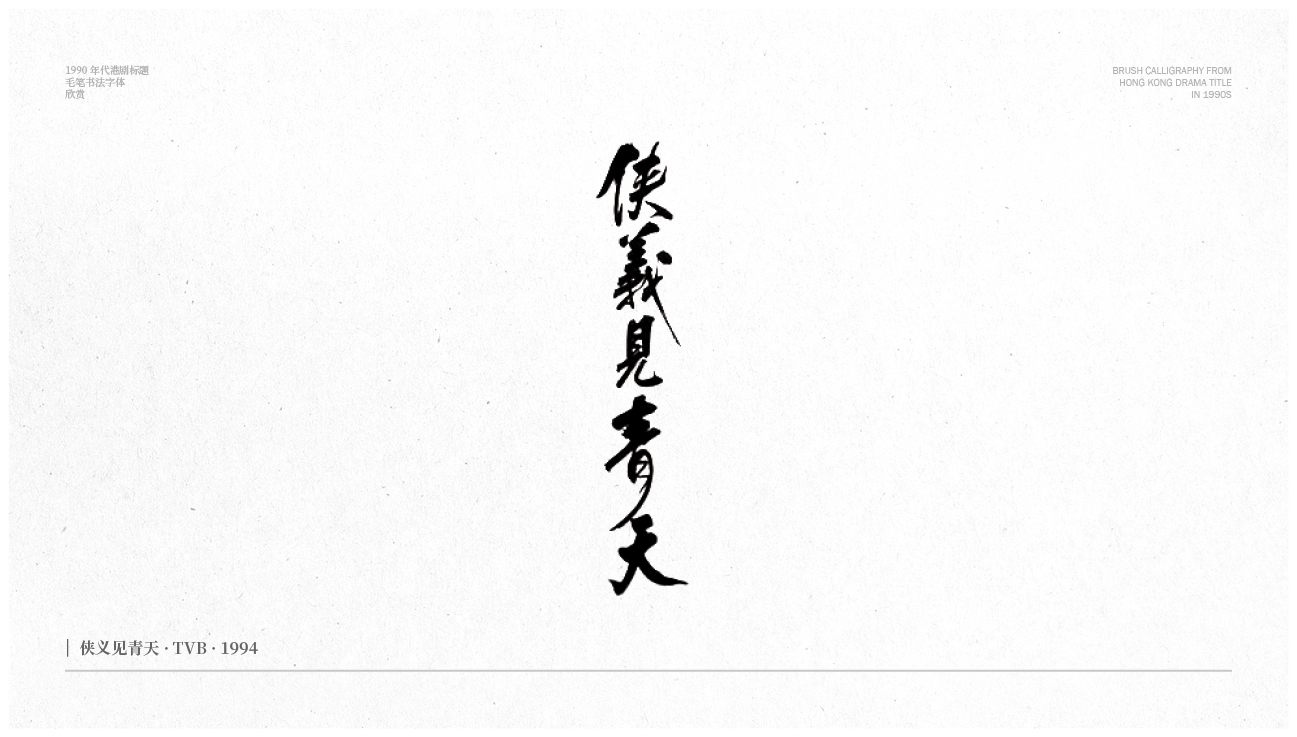 1990 年代港剧标题
毛笔书法字体
欣赏
BRUSH CALLIGRAPHY FROM
HONG KONG DRAMA TITLE
IN 1990S
俠義見青天
侠义见青天 · TVB · 1994